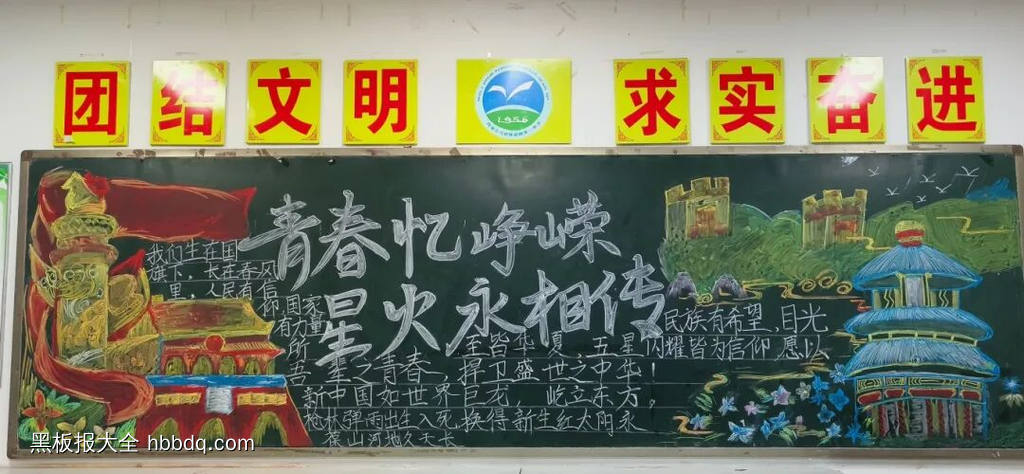 团结文明
求实奋进
1956
青春忆峥嵘
星火永相传
我们生在国
旗下,长在春风
里,人民有信
仰,国家
有力量,
民族有希望,目光
所
至皆华夏,五星
闪耀皆为信仰
愿以
吾辈之青春,捍卫盛世之中华!
新中国如世界巨龙,屹立东方,
枪林弹雨出生入死,换得新生红太阳永
葆山河地久天长
黑板报大全 hbbdq.com